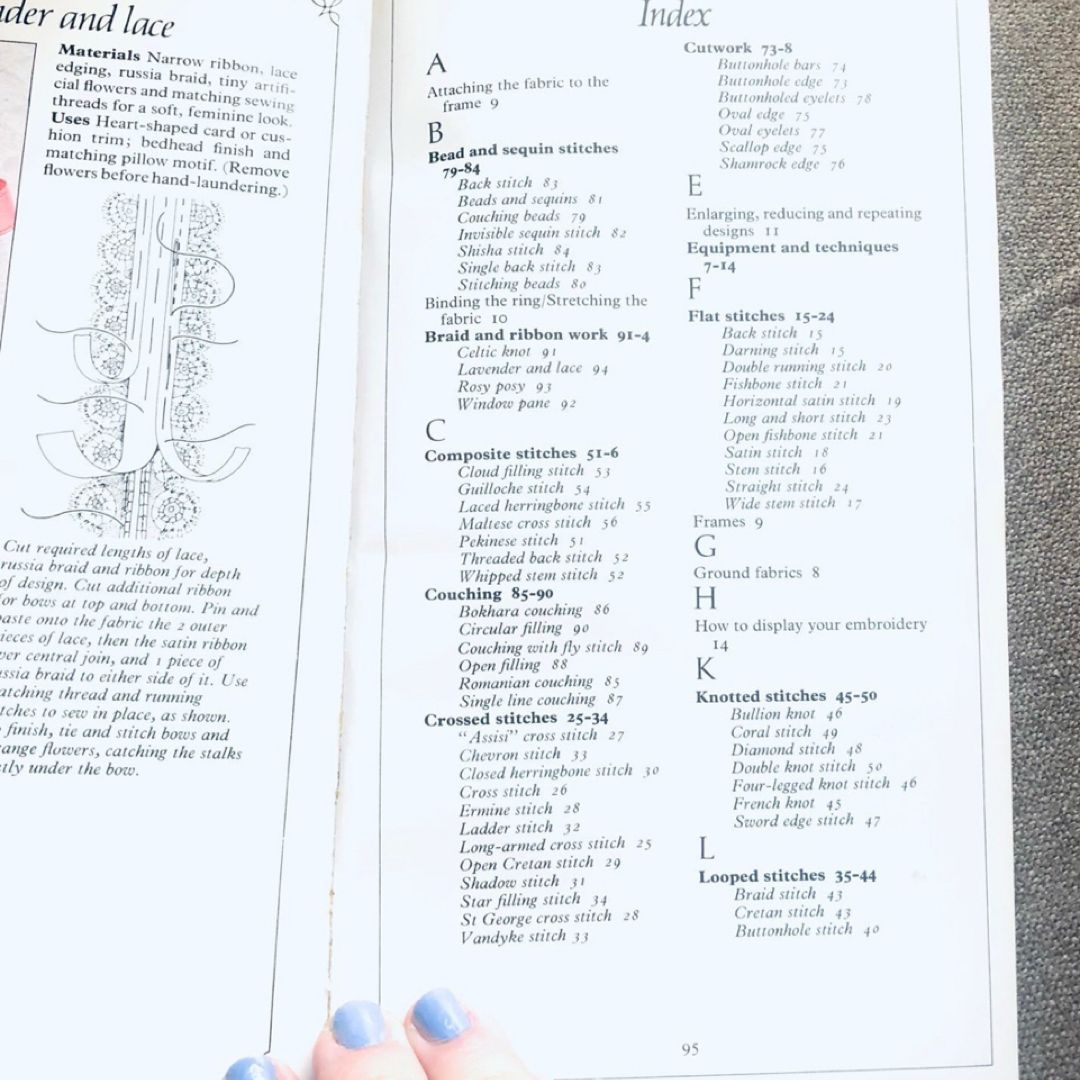 and lace
Materials Narrow ribbon, lace
edging, russia braid, tiny artifi-
cial flowers and matching sewing
threads for a soft, feminine look.
Uses Heart-shaped card or cus-
hion trim; bedhead finish and
matching pillow motif. (Remove
flowers before hand-laundering.)
Cut required lengths of lace,
russia braid and ribbon for depth
of design. Cut additional ribbon
bows at top and bottom. Pin and
onto the fabric the 2 outer
of lace, then the satin ribbon
central join, and 1 piece of
braid to either side of it. Use
thread and running
to sew in place, as shown.
finish, tie and stitch bows and
flowers, catching the stalks
under the bow.
Index
A
Attaching the fabric to the
frame 9
B
Bead and sequin stitches
79-84
Back stitch 83
Beads and sequins 81
Couching beads 79
Invisible sequin stitch 82
Shisha stitch 84
Single back stitch 83
Stitching beads 80
Binding the ring/Stretching the
fabric 10
Braid and ribbon work 91-4
Celtic knot 91
Lavender and lace 94
Rosy posy 93
Window pane 92
C
Composite stitches 51-6
Cloud filling stitch 53
Guilloche stitch 54
Laced herringbone stitch 55
Maltese cross stitch 56
Pekinese stitch 51
Threaded back stitch 52
Whipped stem stitch 52
Couching 85-90
Bokhara couching 86
Circular filling 90
Couching with fly stitch 89
Open filling 88
Romanian couching 85
Single line couching 87
Crossed stitches 25-34
"Assisi" cross stitch 27
Chevron stitch 33
Closed herringbone stitch 30
Cross stitch 26
Ermine stitch 28
Ladder stitch 32
Long-armed cross stitch 25
Open Cretan stitch 29
Shadow stitch 31
Star filling stitch 34
St George cross stitch 28
Vandyke stitch 33
Cutwork 73-8
Buttonhole bars 74
Buttonhole edge 73
Buttonholed eyelets 78
Oval edge 75
Oval eyelets 77
Scallop edge 75
Shamrock edge 76
E
Enlarging, reducing and repeating
designs 11
Equipment and techniques
7-14
F
Flat stitches 15-24
Back stitch 15
Darning stitch 15
Double running stitch 20
Fishbone stitch 21
Horizontal satin stitch 19
Long and short stitch 23
Open fishbone stitch 21
Satin stitch 18
Stem stitch 16
Straight stitch 24
Wide stem stitch 17
Frames 9
G
Ground fabrics 8
H
How to display your embroidery
14
K
Knotted stitches 45-50
Bullion knot 46
Coral stitch 49
Diamond stitch 48
Double knot stitch 50
Four-legged knot stitch 46
French knot 45
Sword edge stitch 47
L
Looped stitches 35-44
Braid stitch 43
Cretan stitch 43
Buttonhole stitch 40
95